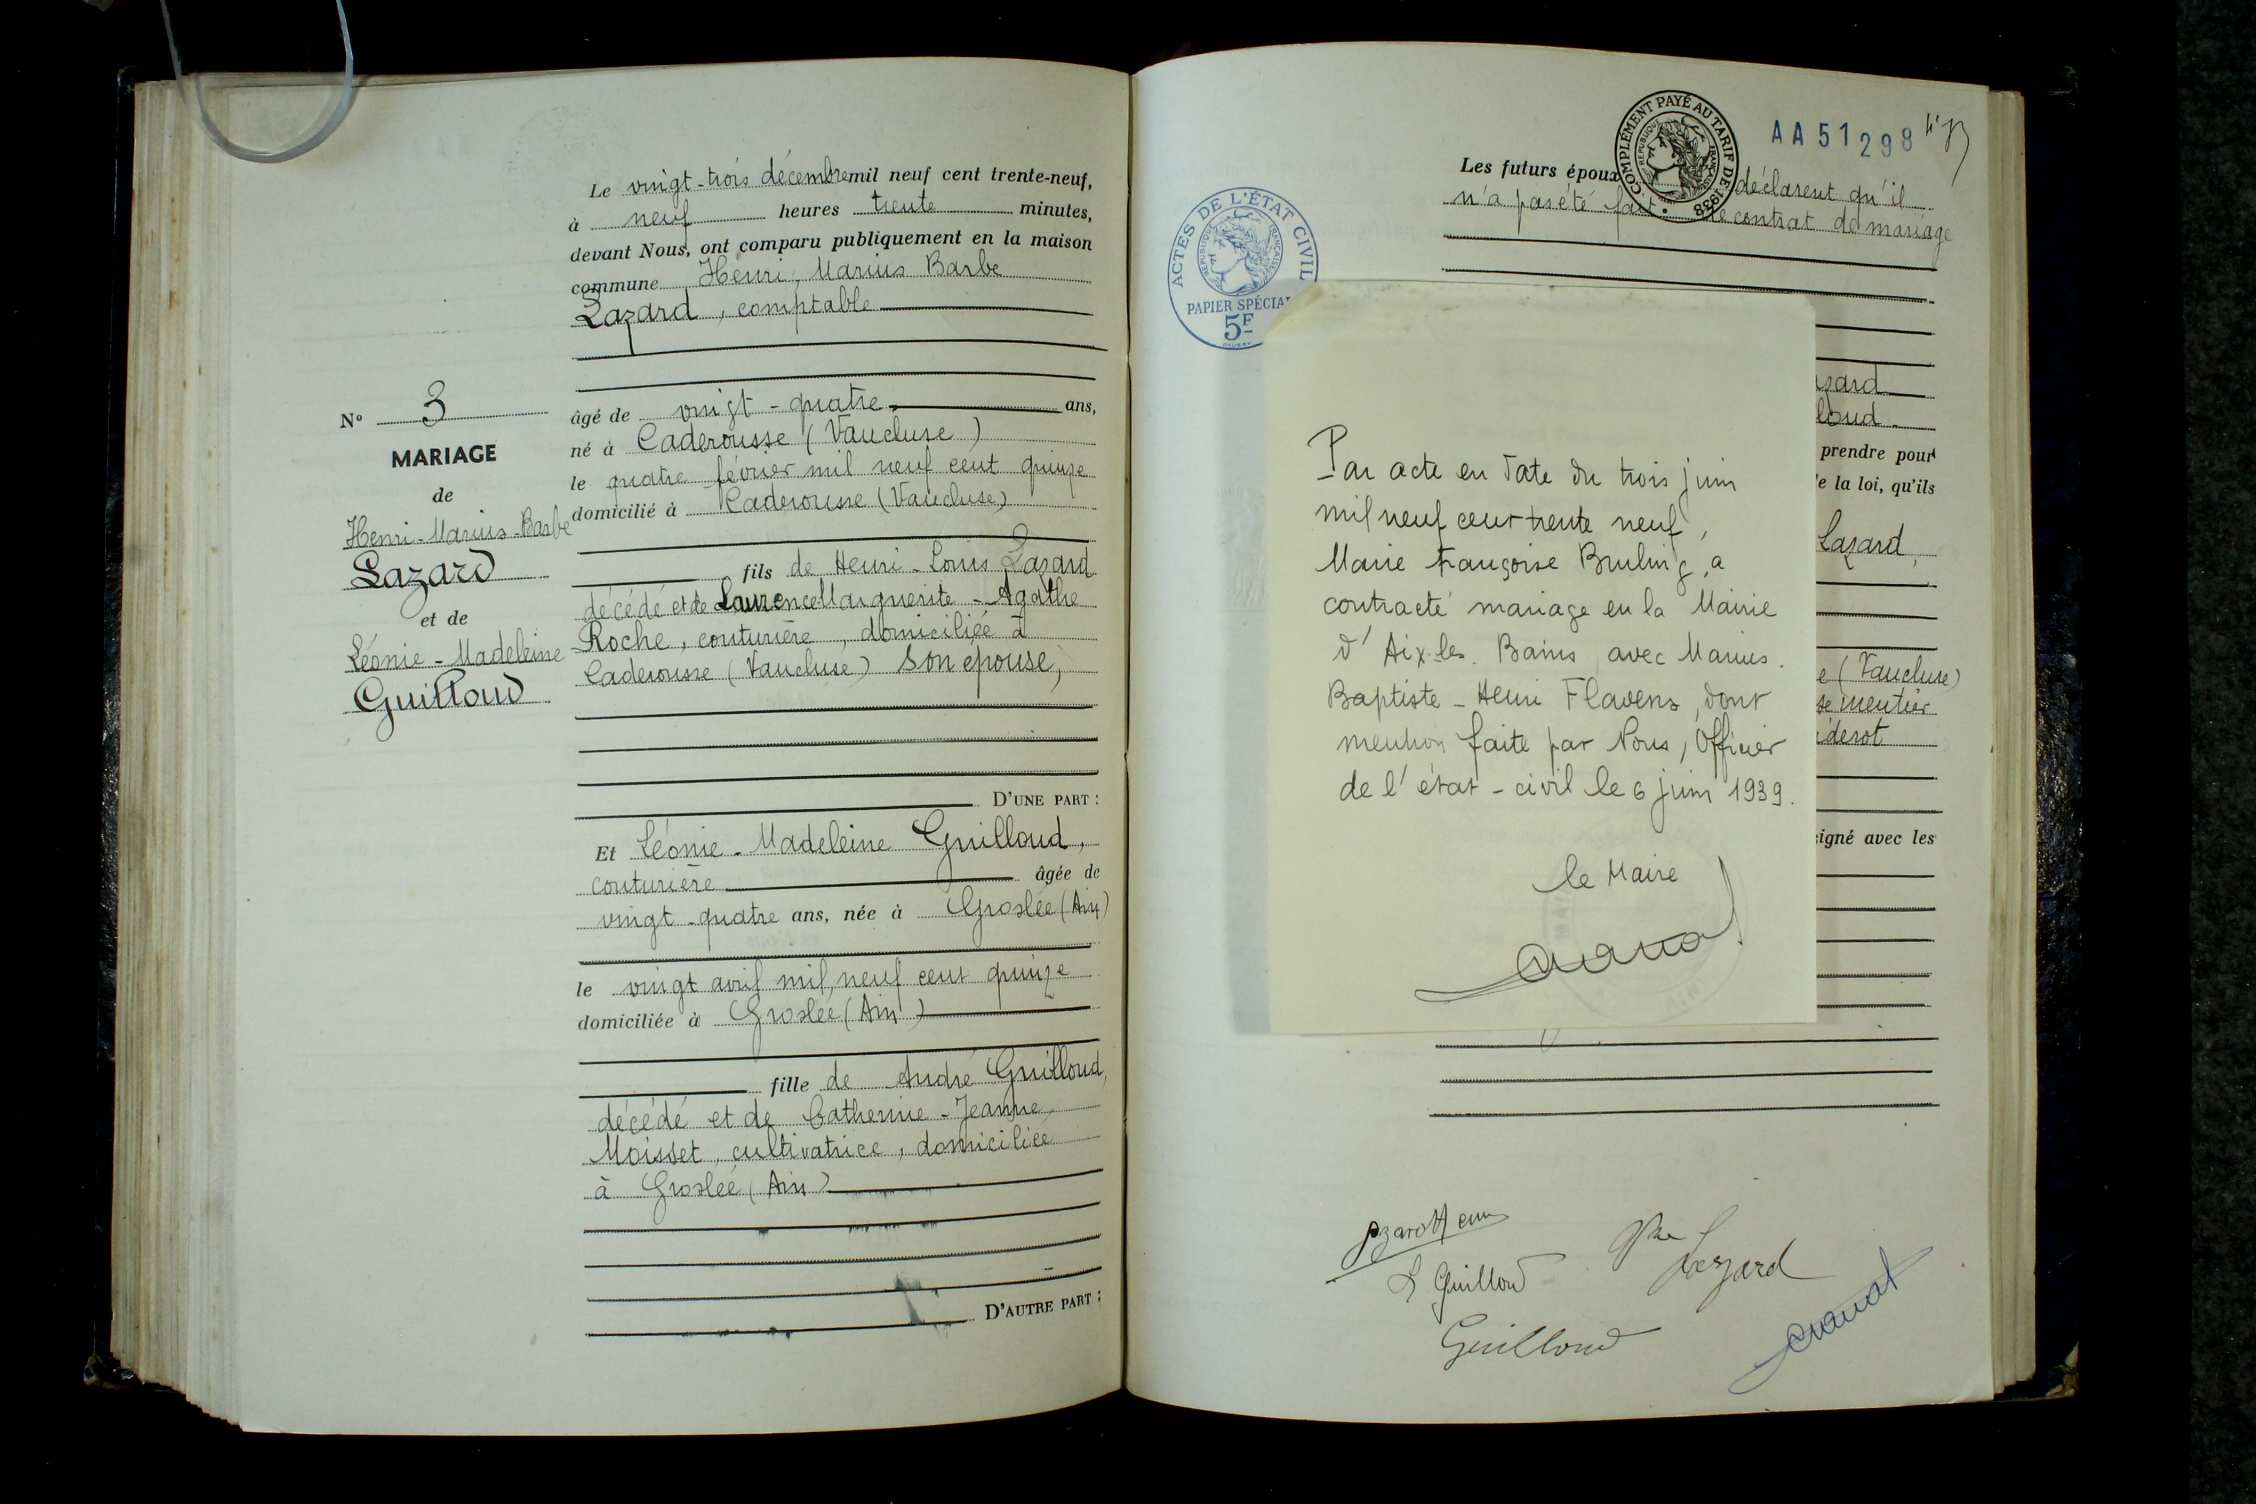 Le vingt-trois décembre mil neuf cent trente-neuf,
à neuf heures trente minutes,
devant Nous, ont comparu publiquement en la maison
commune Henri, Marius Barbe
Lazard, comptable
N° 3
MARIAGE
de
Henri-Marius-Barbe
Lazard
et de
Léonie-Madeleine
Guilloud
âgé de vingt-quatre ans,
né à Caderousse (Vaucluse)
le quatre février mil neuf cent quinze
domicilié à Caderousse (Vaucluse)
fils de Henri-Louis Lazard
décédé et de Laurence Marguerite-Agathe
Roche, couturière, domiciliée à
Caderousse (Vaucluse) son épouse,
D'UNE PART :
Et Léonie-Madeleine Guilloud,
couturière âgée de
vingt-quatre ans, née à Groslée (Ain)
le vingt avril mil neuf cent quinze
domiciliée à Groslée (Ain)
fille de André Guilloud,
décédé et de Catherine-Jeanne
Moisset, cultivatrice, domiciliée
à Groslée (Ain)
D'AUTRE PART :
COMPLÉMENT PAYÉ AU TARIF DE 1938
RÉPUBLIQUE FRANÇAISE
AA51298
Les futurs époux déclarent qu'il
n'a pas été fait de contrat de mariage
ACTES DE L'ÉTAT CIVIL
RÉPUBLIQUE FRANÇAISE
PAPIER SPÉCIAL
5F
azard
loud
prendre pour
de la loi, qu'ils
Lazard,
e (Vaucluse)
se mentier
iderot
signé avec les
Par acte en date du trois juin
mil neuf cent trente neuf,
Marie Françoise Bruling, a
contracté mariage en la Mairie
d'Aix-les-Bains avec Marius-
Baptiste-Henri Flavens, dont
mention faite par Nous, Officier
de l'état-civil le 6 juin 1939.
le Maire
Lazard Henri
L Guilloud
Vve Lazard
Guilloud